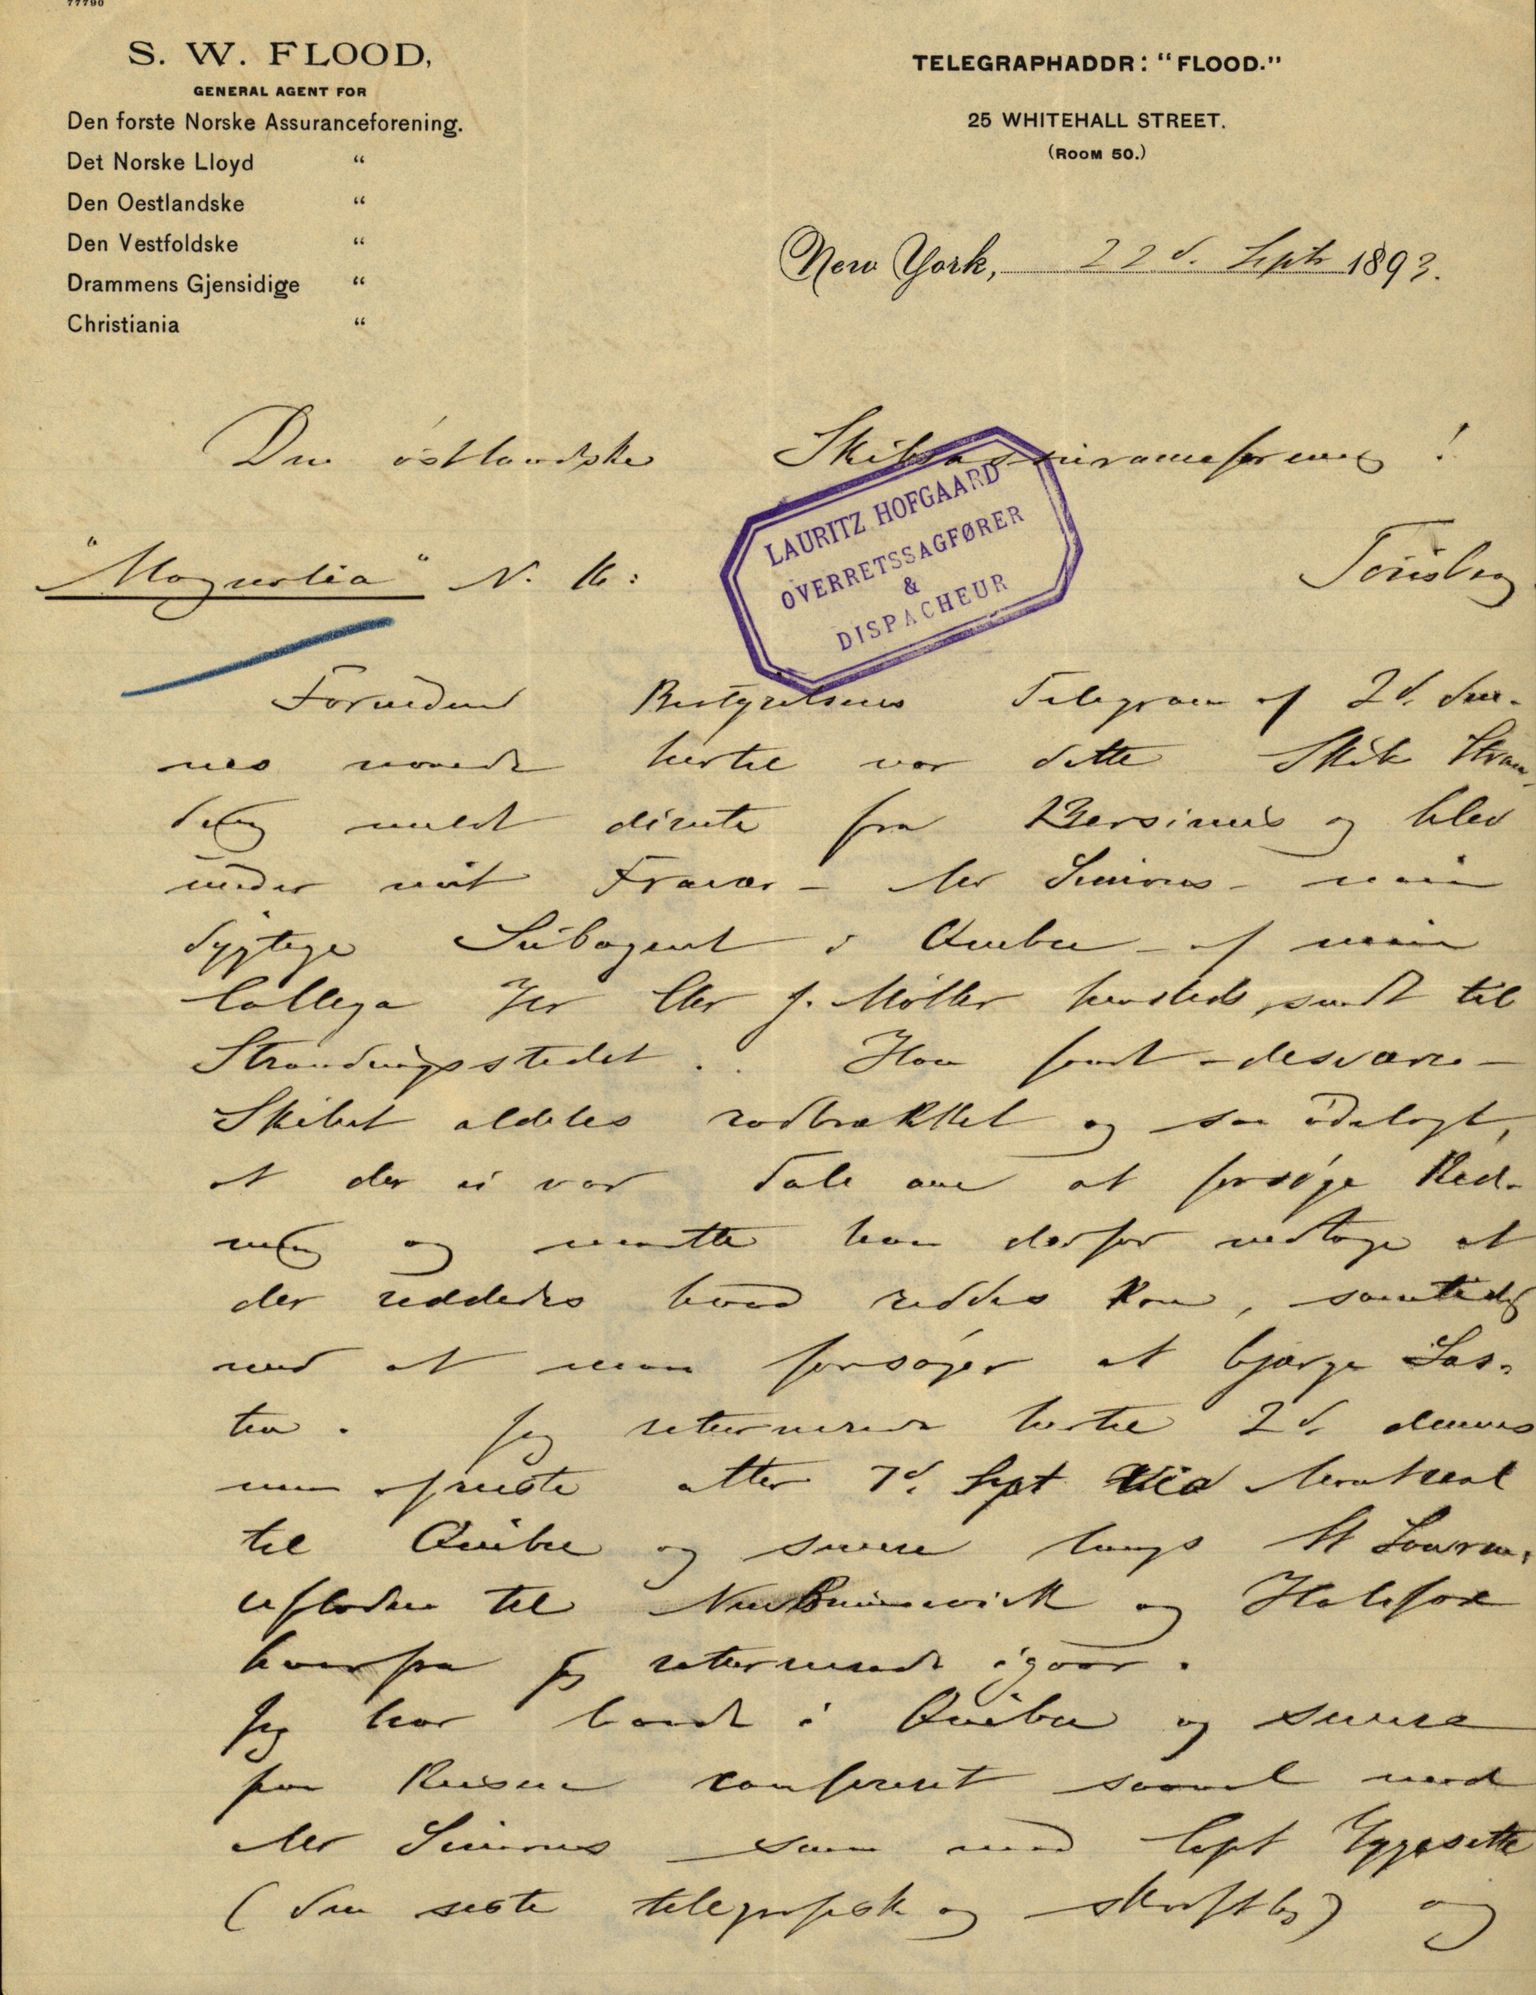 77790
S. W. FLOOD,
GENERAL AGENT FOR
Den forste Norske Assuranceforening.
Det Norske Lloyd "
Den Oestlandske "
Den Vestfoldske "
Drammens Gjensidige "
Christiania "
TELEGRAPHADDR: "FLOOD."
25 WHITEHALL STREET.
(ROOM 50.)
New York, 22d. Septr 1893.
Den östlandske Skibsassuranceforening!
"Magnolia" N. K: Tönsberg
LAURITZ HOFGAARD
OVERRETSSAGFØRER
&
DISPACHEUR
Forinden Bestyrelsens Telegram af 2d. den-
nes naaede hertil var dette Skibs Stran-
ding meldt directe fra Bersimis og blev
under mit Fravær - Mr Simons - min
dygtige Subagent i Quebec - af min
Collega Hr Chr J. Møller hersteds sendt til
Strandingsstedet. Han fandt - desværre -
Skibet aldeles radbrækket og saa ödelagt,
at der ei var Tale om at forsöge Red-
ning og maatte han derfor vedtage at
der reddedes hvad reddes kan, samtidig
med at man forsöger at bjærge Las-
ten. Jeg returnerede hertil 2d. dennes
men afreiste atter 7d. Sept via Montreal
til Quebec og senere langs St Lawren-
cefloden til New Brunswick og Halifax
hvorfra jeg returnerede igaar.
Jeg har baade i Quebec og senere
paa Reisen confereret saavel med
Mr Simons som med Capt
(den sidste telegrafisk og skriftlig) og